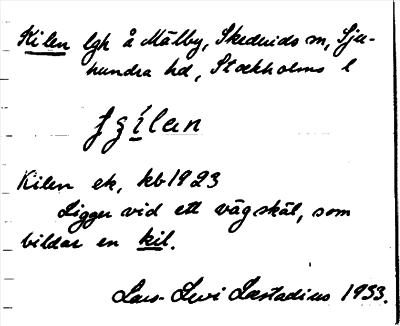 Kilen lgh å Mälby, Skedvids sn, Sju-
hundra hd, Stockholms l
Kilen ek, kb 1923
Ligger vid ett vägskäl, som
bildar en kil.
Lars-Levi Læstadius 1933.